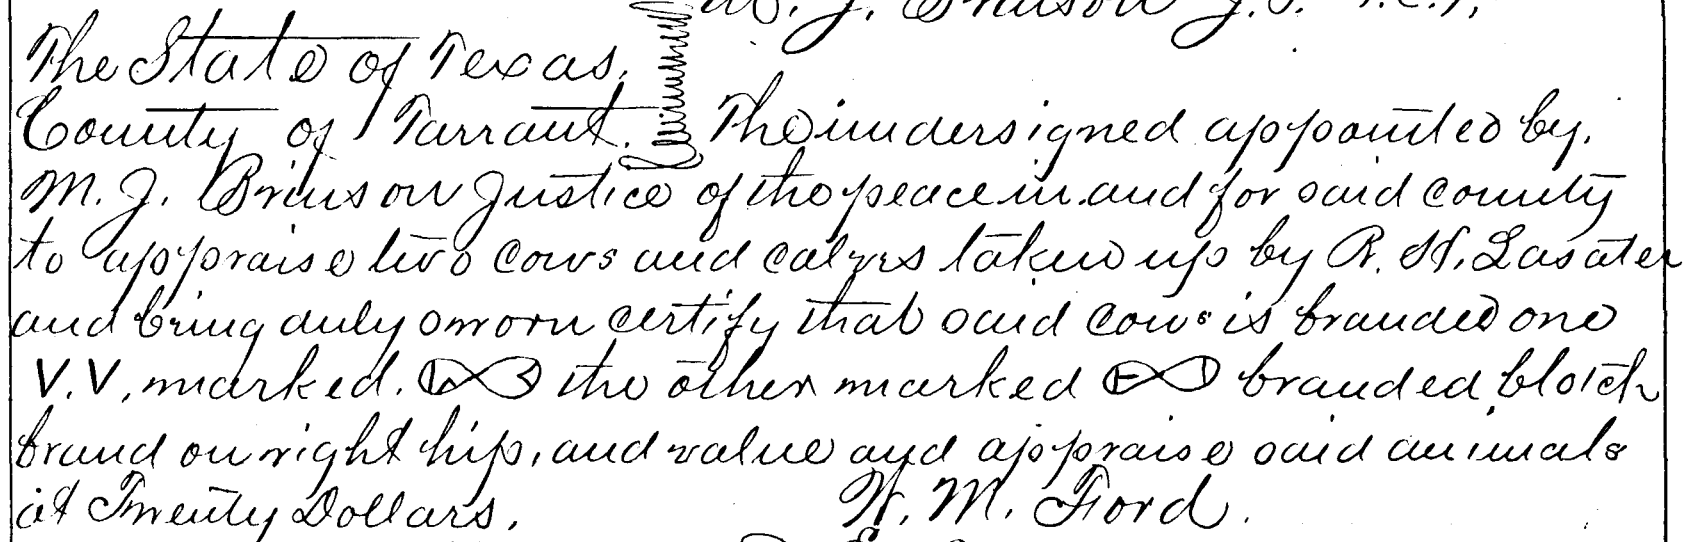 M. J. Brinson J.P. T.C.T.
The State of Texas.
County of Tarrant. The undersigned appointed by.
M. J. Brinson Justice of the peace in and for said county
to appraise two cows and calves taken up by R. H. Lasater
and being duly sworn certify that said cows is branded one
V.V. marked. the other marked branded blotch
brand on right hip, and value and appraise said animals
at Twenty Dollars. W. M. Ford.